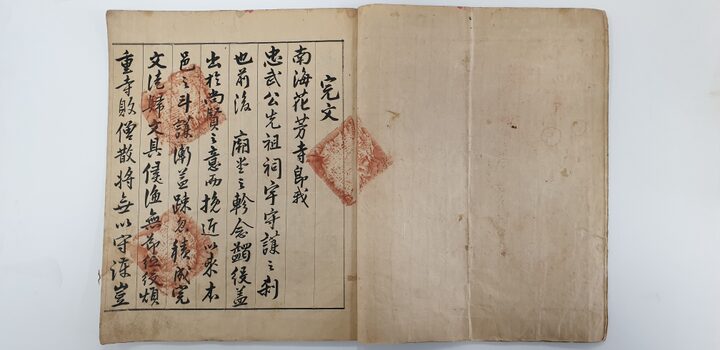 完文
南海花芳寺即我
忠武公先祖祠宇守護之刹
也前後 廟堂之軫念蠲役蓋
出於尚賢之意而挽近以來本
邑之斗護漸益疎忽積成完
文徒歸文具侵漁無節征役煩
重寺敗僧散將無以守護豈